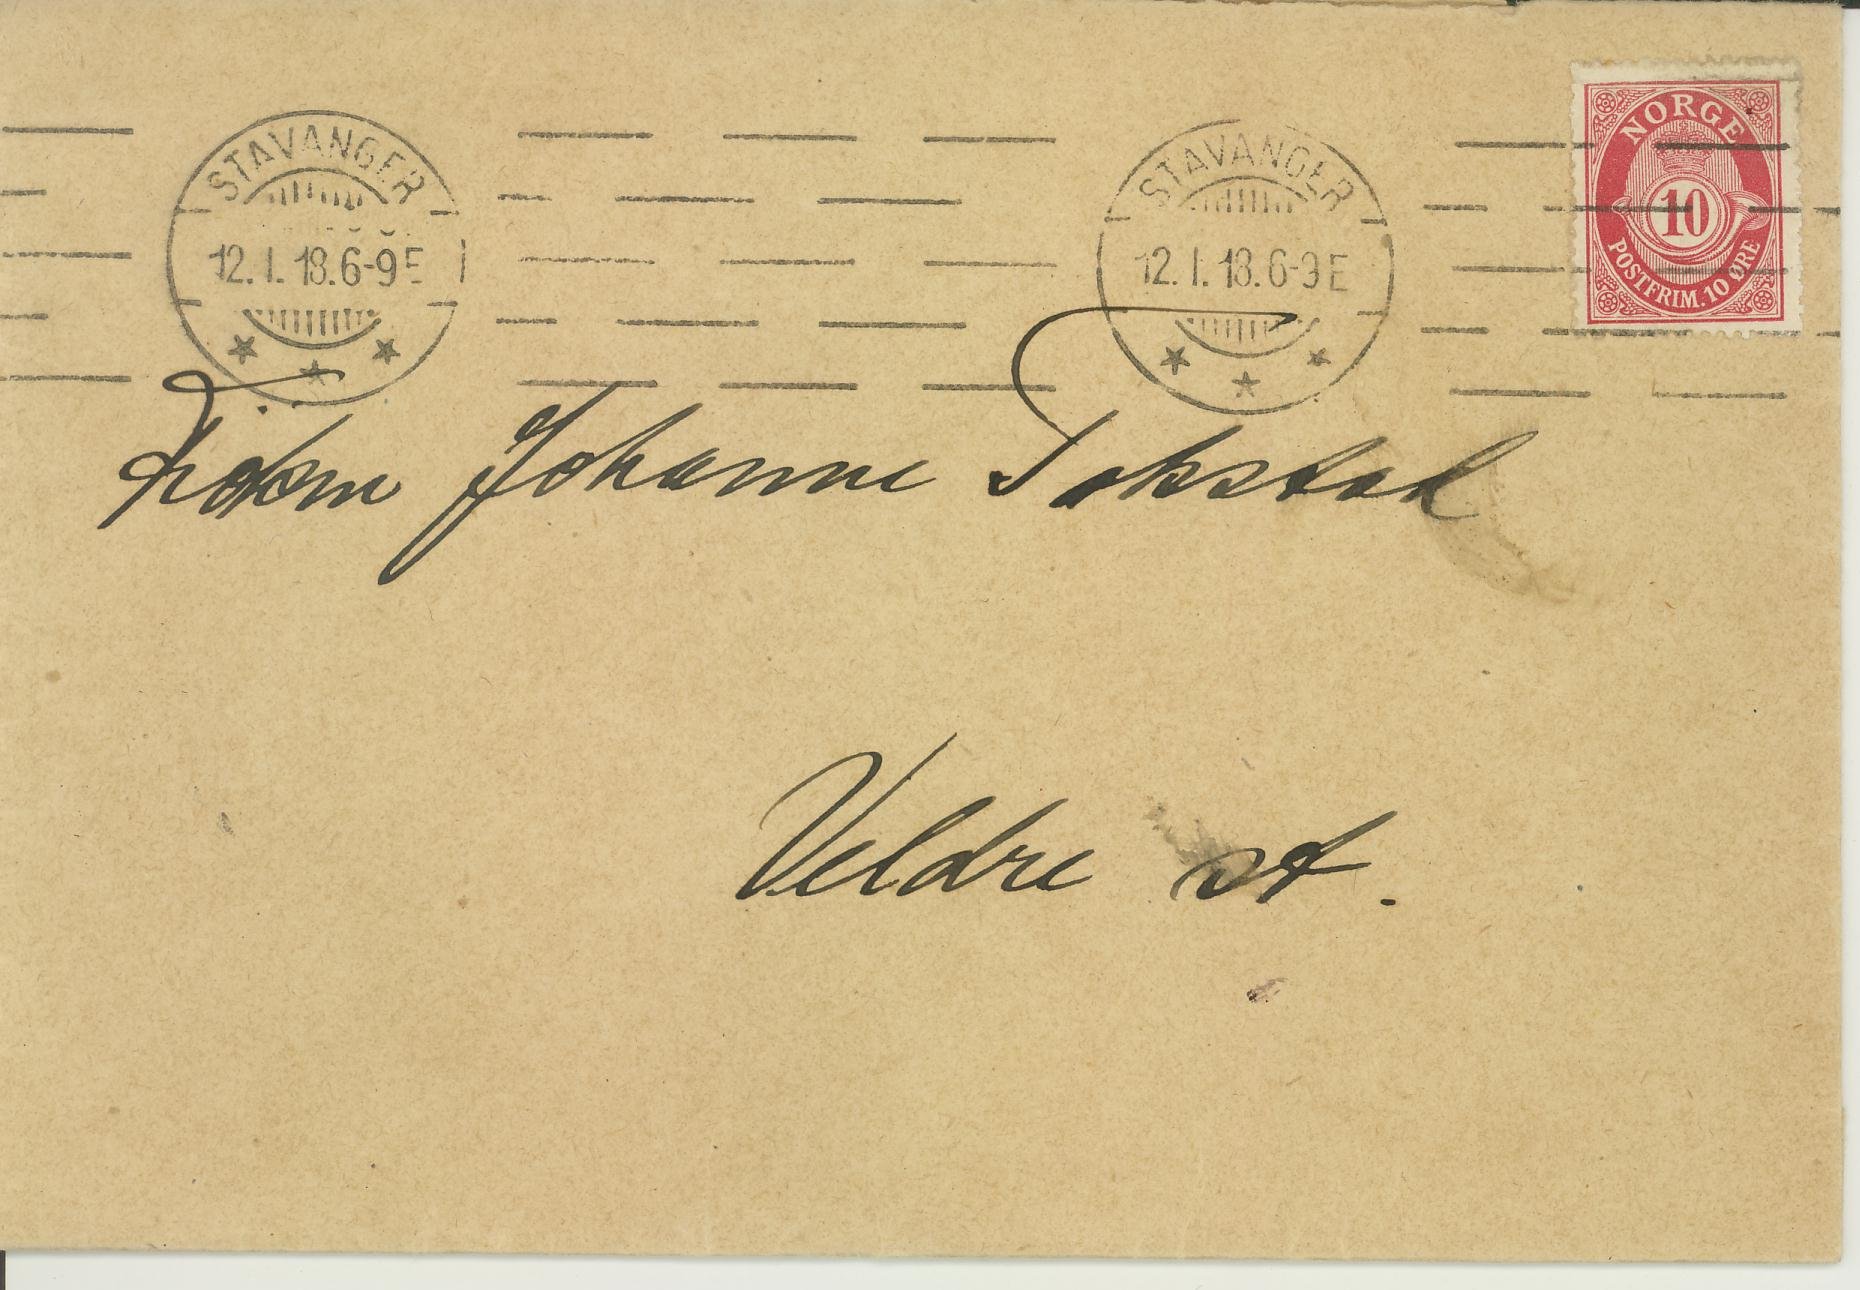 STAVANGER
12. I. 18. 6-9 E
STAVANGER
12. I. 18. 6-9 E
NORGE
10
POSTFRIM. 10 ØRE
Johanne Tokstad
Veldre st.